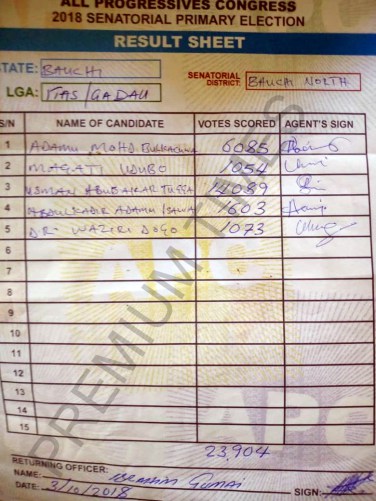 ALL PROGRESSIVES CONGRESS
2018 SENATORIAL PRIMARY ELECTION
RESULT SHEET
STATE: BAUCHI
SENATORIAL DISTRICT: BAUCHI NORTH
LGA: ITAS/GADAU
S/N NAME OF CANDIDATE VOTES SCORED AGENT'S SIGN
1 ADAMU MOHD BULKACHUWA 6085
2 MAGAJI UDUBO 1054
3 USMAN ABUBAKAR TUFFA 14089
4 ABDULKADIR ADAMU 1603
5 DR. WAZIRI DOGO 1073
6
7
8
9
10
11
12
13
14
15
23,904
RETURNING OFFICER:
NAME:
DATE: 3/10/2018 SIGN:
APC
APC
PREMIUM TIMES